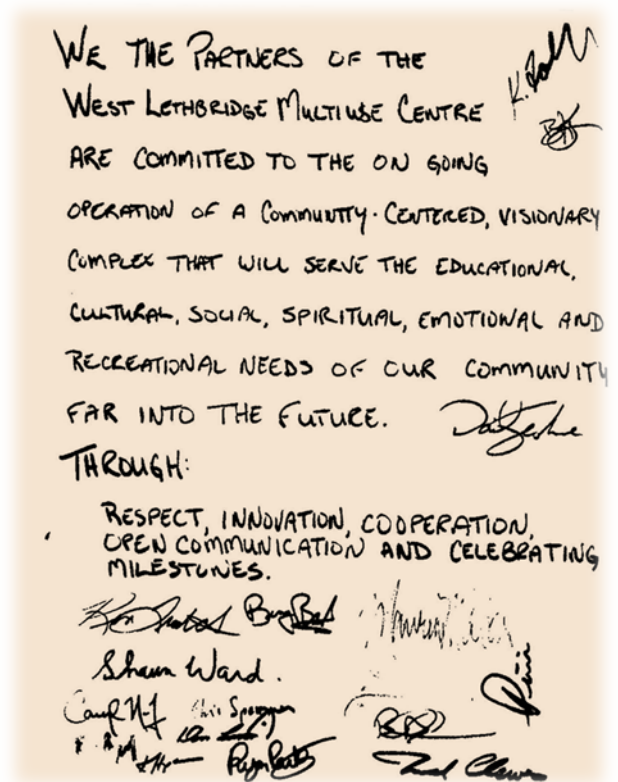 WE THE PARTNERS OF THE
WEST LETHBRIDGE MULTIUSE CENTRE
ARE COMMITTED TO THE ON GOING
OPERATION OF A COMMUNITY-CENTERED, VISIONARY
COMPLEX THAT WILL SERVE THE EDUCATIONAL,
CULTURAL, SOCIAL, SPIRITUAL, EMOTIONAL AND
RECREATIONAL NEEDS OF OUR COMMUNITY
FAR INTO THE FUTURE.
THROUGH:
RESPECT, INNOVATION, COOPERATION,
OPEN COMMUNICATION AND CELEBRATING
MILESTONES.
Shawn Ward.